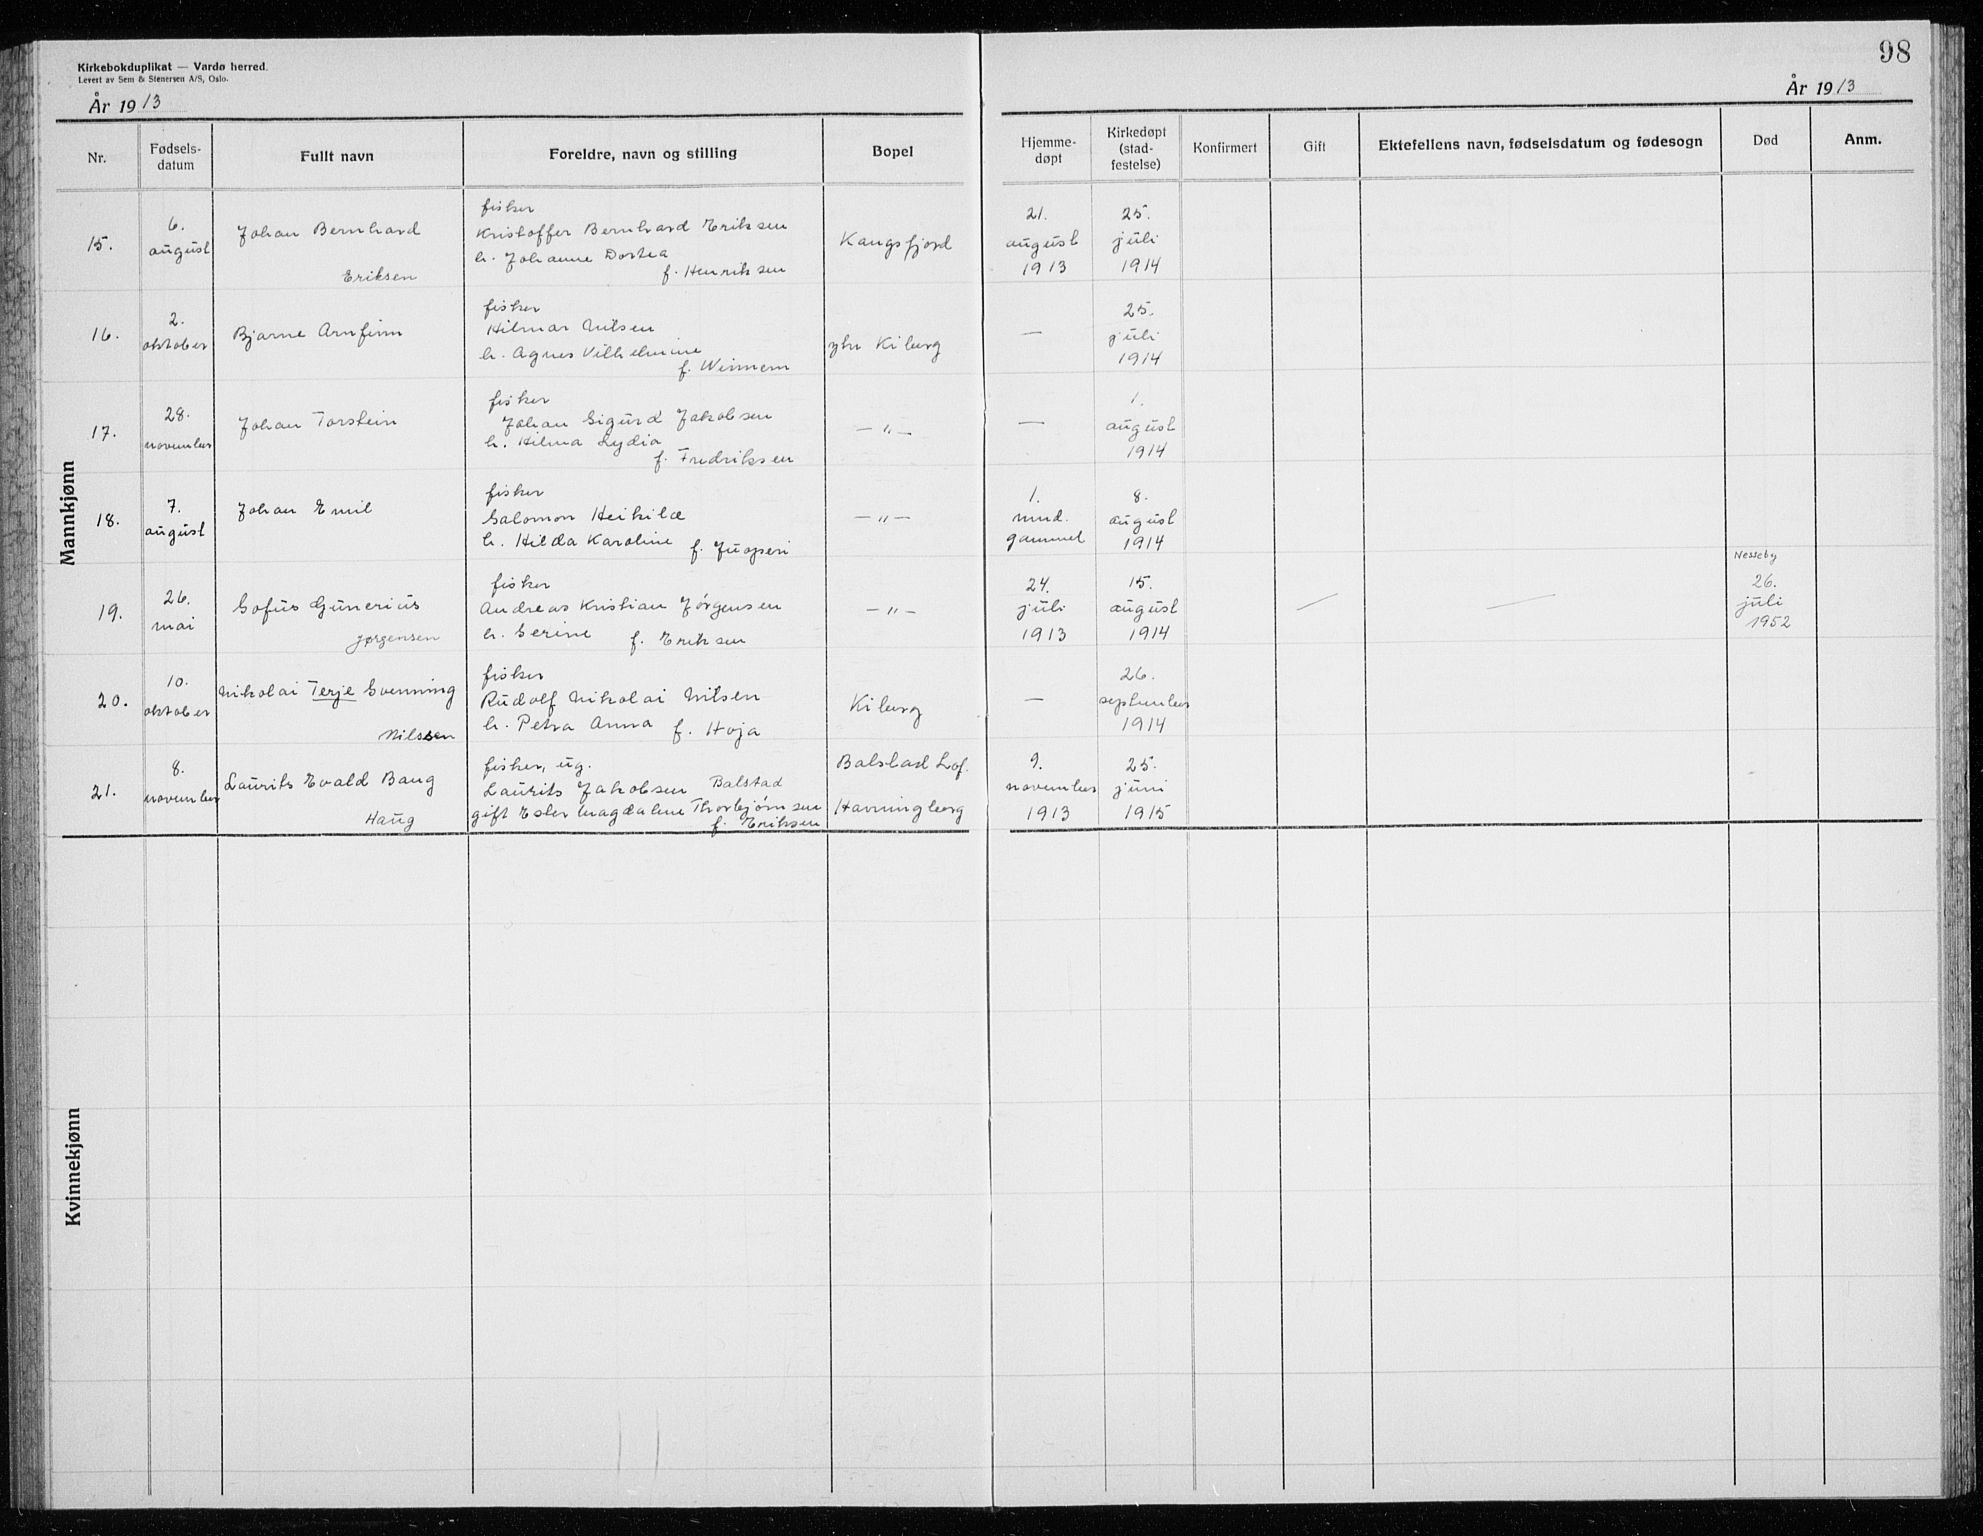 98
Kirkebokduplikat — Vardø herred.
Levert av Sem & Stenersen A/S, Oslo.
År 1913
År 1913
Nr.
Fødsels-
datum
Fullt navn
Foreldre, navn og stilling
Bopel
Hjemme-
døpt
Kirkedøpt
(stad-
festelse)
Konfirmert
Gift
Ektefellens navn, fødselsdatum og fødesogn
Død
Anm.
Mannkjønn
15.
6.
august
Johan Bernhard
Eriksen
fisker
Kristoffer Bernhard Eriksen
h. Johanne Dortea
f. Henriksen
Kangsfjord
21.
august
1913
25.
juli
1914
16.
2.
oktober
Bjarne Arnfinn
fisker
Hilmar Nilsen
h. Agnes Vilhelmine
f. Winnem
Kiberg
—
25.
juli
1914
17.
28.
november
Johan Torstein
fisker
Johan Sigurd Jakobsen
h. Hilma Lydia
f. Fredriksen
— " —
—
1.
august
1914
18.
7.
august
Johan Emil
fisker
Salomon Heikilæ
h. Hilda Karoline
f. Juoperi
— " —
1.
mnd.
gammel
8.
august
1914
19.
26.
mai
Sofus Gunerius
Jørgensen
fisker
Andreas Kristian Jørgensen
h. Serine f. Eriksen
— " —
24.
juli
1913
15.
august
1914
—
—
Nesseby
26.
juli
1952
20.
10.
oktober
Nikolai Terje Svenning
Nilssen
fisker
Rudolf Nikolai Nilsen
h. Petra Anna f. Hoja
Kiberg
—
26.
september
1914
21.
8.
november
Laurits Evald Baug
Haug
fisker, ug.
Laurits Jakobsen Balstad
gift Ester Magdalene Thorbjørnsen
f. Eriksen
Balstad Lof.
Havningberg
9.
november
1913
25.
juni
1915
Kvinnekjønn